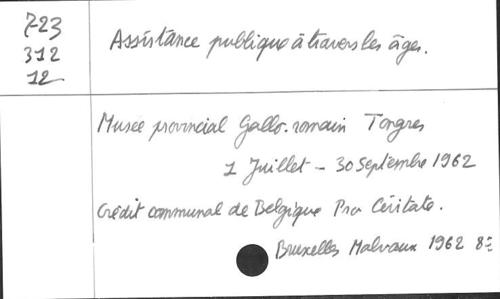 723
312
12
Assistance publique à travers les âges.
Musée provincial Gallo-romain Tongres
1 Juillet - 30 Septembre 1962
Crédit communal de Belgique Pro Civitate.
Bruxelles Malvaux 1962 8°